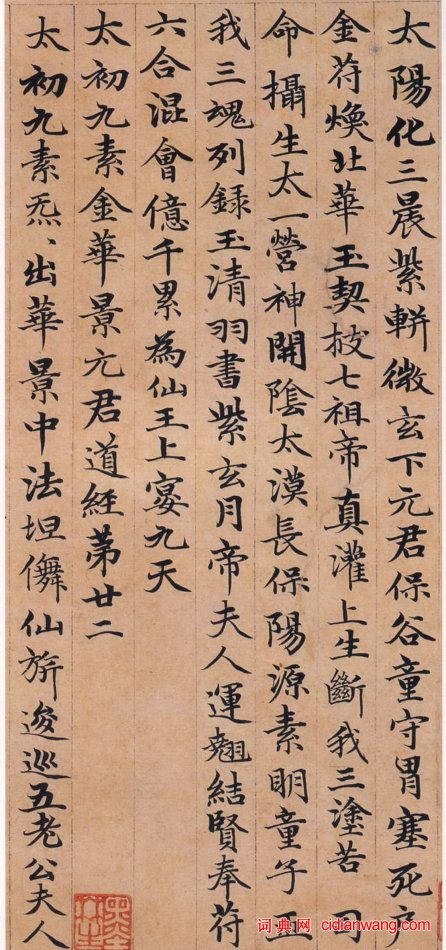 太陽化三晨紫軿徽玄下元君保谷童守胃塞死户
金苻煥北華玉契拔七祖帝真灌上生斷我三塗苦日
命攝生太一營神開陰太漠長保陽源素明童子正
我三魂列録玉清羽書紫玄月帝夫人運翹結賢奉苻
六合混會億千累為仙王上宴九天
太初九素金華景元君道經第廿二
太初九素炁、出華景中法坦儛仙旂逡巡五老公夫人
词典网 cidianwang.com